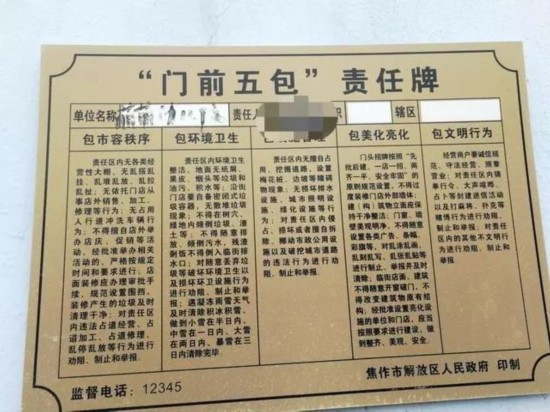 “门前五包”责任牌
单位名称
责任人
职
辖区
包市容秩序
责任区内无各类经
营性大棚，无乱搭乱
挂、乱堆乱放、乱拉
乱扯、无依托门店从
事店外销售、加工、
修理等行为；无占用
人行道冲洗车辆行
为；不得擅自店外举
办店庆、促销等活动，
经批准举办相关
活动的，严格按规定
时间和要求进行；店
面装修应办理审批手
续，规范设置围挡，
装修产生的垃圾及时
清理干净；对责任区
内违法占道经营、占
道加工、占道修理、
乱停乱放等行为进行
劝阻、制止和举报。
包环境卫生
责任区内环境卫生
整洁，地面无纸屑、
果皮、烟头等垃圾和
油污、积水等；沿街
门店要自备密闭式垃
圾容器，无散落垃圾
现象；不得在树穴、
绿地内倾倒垃圾、渣
土等；不得随意排
放、倾倒污水，残渣
剩饭不得倒入临街排
水口；对随意弃弃垃
圾等破坏环境卫生以
及损坏环卫设施行为
进行劝阻、制止和举
报；遇凝冻雨雪天气
及时清除积冰积雪，
做到小雪在半日内、
中雪在一日内、大雪
在两日内、暴雪在三
日内清除完毕。
责任区内无擅自占
用、挖掘道路，设置
梅花桩、边坡等障碍
物现象；无损坏排水
设施、城市照明设
施、绿化设施等行
为；对责任区内侵
占、损坏或者擅自拆
除、挪动市政公用设
施以及破坏城市道路
的违法行为进行劝
阻、制止和举报。
包美化亮化
门头招牌按照“先
批后建、一店一招、两
齐一平、安全牢固”的
原则规范设置，不得过
度装修门店外部墙体；
建（构）筑物立面应保
持干净整洁；门窗、墙
壁美观明净，不得随意
设置各类广告、条幅、
彩旗等，对乱涂乱画、
乱刻乱写、乱张乱贴等
进行制止、举报并及时
清除；临街店面、建筑
不得随意开窗破门，不
得改变建筑物原有结
构；经批准设置亮化设
施的单位和门店，应当
按照要求进行建设，做
到整齐、美观、安全。
包文明行为
经营商户要诚信规
范、守法经营，摒弃
营业；对责任区内猜
拳行令、大声喧哗、
占卜等封建迷信活动
以及打麻将、扑克等
赌博行为进行劝阻、
制止和举报；对责任
区内的其他不文明行
为劝阻、制止和举报。
监督电话：12345
焦作市解放区人民政府 印制